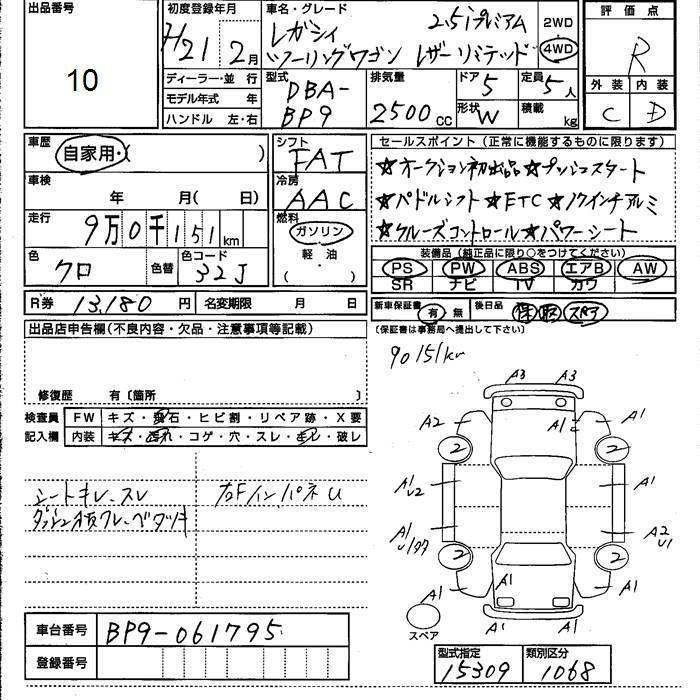 出品番号
10
初度登録年月
H21 2月
車名・グレード
2.5iプレミアム
レガシィ
ツーリングワゴン レザーリミテッド
2WD
4WD
評価点
R
外装 内装
C D
ディーラー・並 行
モデル年式 年
ハンドル 左・右
型式
DBA-
BP9
排気量
2500cc
ドア 5
形状 W
定員 5人
積載 kg
車歴
自家用・( )
車検
年 月( 日)
走行
9万0千151km
色
クロ
色替
色コード
32J
シフト
FAT
冷房
AAC
燃料
ガソリン
軽 油
( ・ )
セールスポイント (正常に機能するものに限ります)
☆オークション初出品☆プッシュスタート
☆パドルシフト☆ETC☆17インチアルミ
☆クルーズコントロール☆パワーシート
装備品 (純正品に限り○をつけてください)
PS PW ABS エアB AW
SR ナビ TV カワ
R券 13,180円 名変期限 月 日
新車保証書 有・無 後日品 保 取 スペア
(保証書は事務局へ提出して下さい)
出品店申告欄(不良内容・欠品・注意事項等記載)
修復歴 有〔箇所 〕
90151km
検査員
記入欄
FW キズ・飛石・ヒビ割・リペア跡・X要
内装 キズ・汚れ・コゲ・穴・スレ・キレ・破レ
シートキレ、スレ
右Fインパネ U
A3 A3
A2 A1 A1
2 2
A1 U2 A1
A1 A2 U1
2 2
A1 A1 A1
A1 A1
スペア
車台番号 BP9-061795
登録番号
型式指定 類別区分
15309 1068